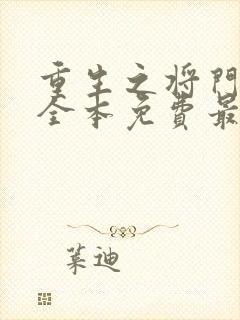 重生之将门
全本免费最
叶迪